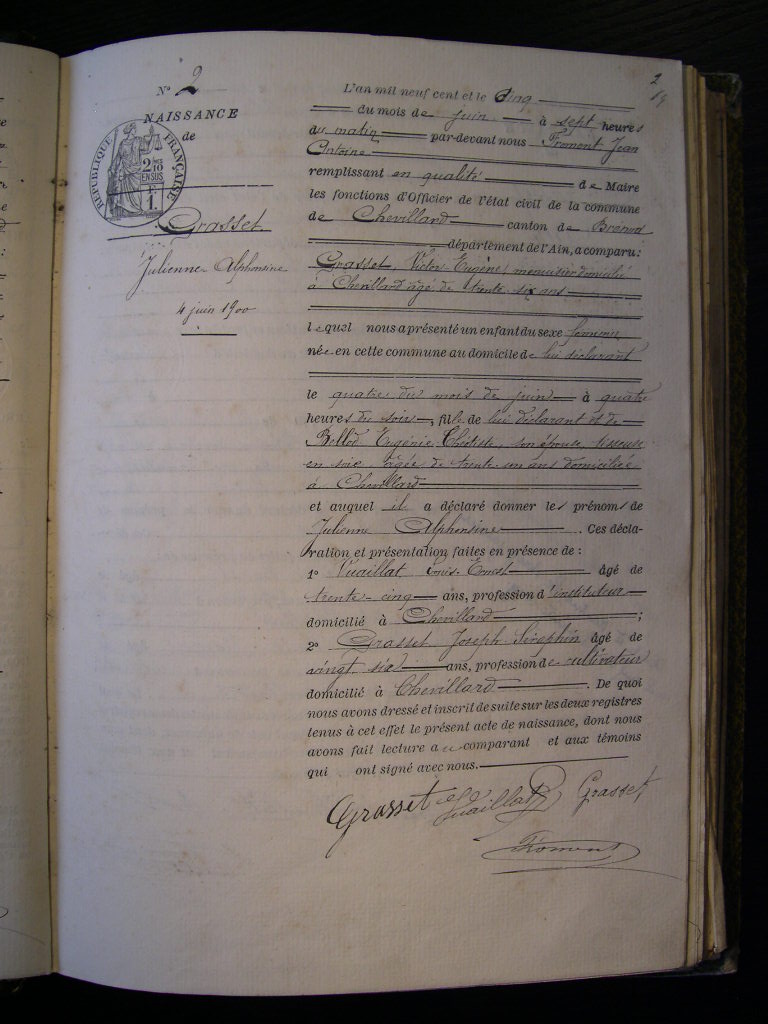 2
19
N° 2
NAISSANCE
de
RÉPUBLIQUE FRANÇAISE
2/10
EN SUS
F
1.
Grasset
Julienne Alphonsine
4 juin 1900
L'an mil neuf cent et le cinq
du mois de juin à sept heures
du matin par-devant nous Fromont Jean
Antoine
remplissant en qualité de Maire
les fonctions d'Officier de l'état civil de la commune
de Chevillard canton de Brenod
département de l'Ain, a comparu:
Grasset, Victor Eugène, menuisier domicilié
à Chevillard âgé de trente six ans
lequel nous a présenté un enfant du sexe féminin
née en cette commune au domicile de lui déclarant
le quatre du mois de juin à quatre
heures du soir, fille de lui déclarant et de
Bellod Eugénie son épouse, tisseuse
en soie âgée de trente un ans domiciliée
à Chevillard
et auquel il a déclaré donner les prénoms de
Julienne Alphonsine. Ces décla-
ration et présentation faites en présence de :
1° Vuaillat Louis Ernest âgé de
trente-cinq ans, profession d'instituteur
domicilié à Chevillard ;
2° Grasset Joseph Séraphin âgé de
vingt six ans, profession de cultivateur
domicilié à Chevillard. De quoi
nous avons dressé et inscrit de suite sur les deux registres
tenus à cet effet le présent acte de naissance, dont nous
avons fait lecture au comparant et aux témoins
qui ont signé avec nous.
Grasset Vuaillat Grasset
Fromont